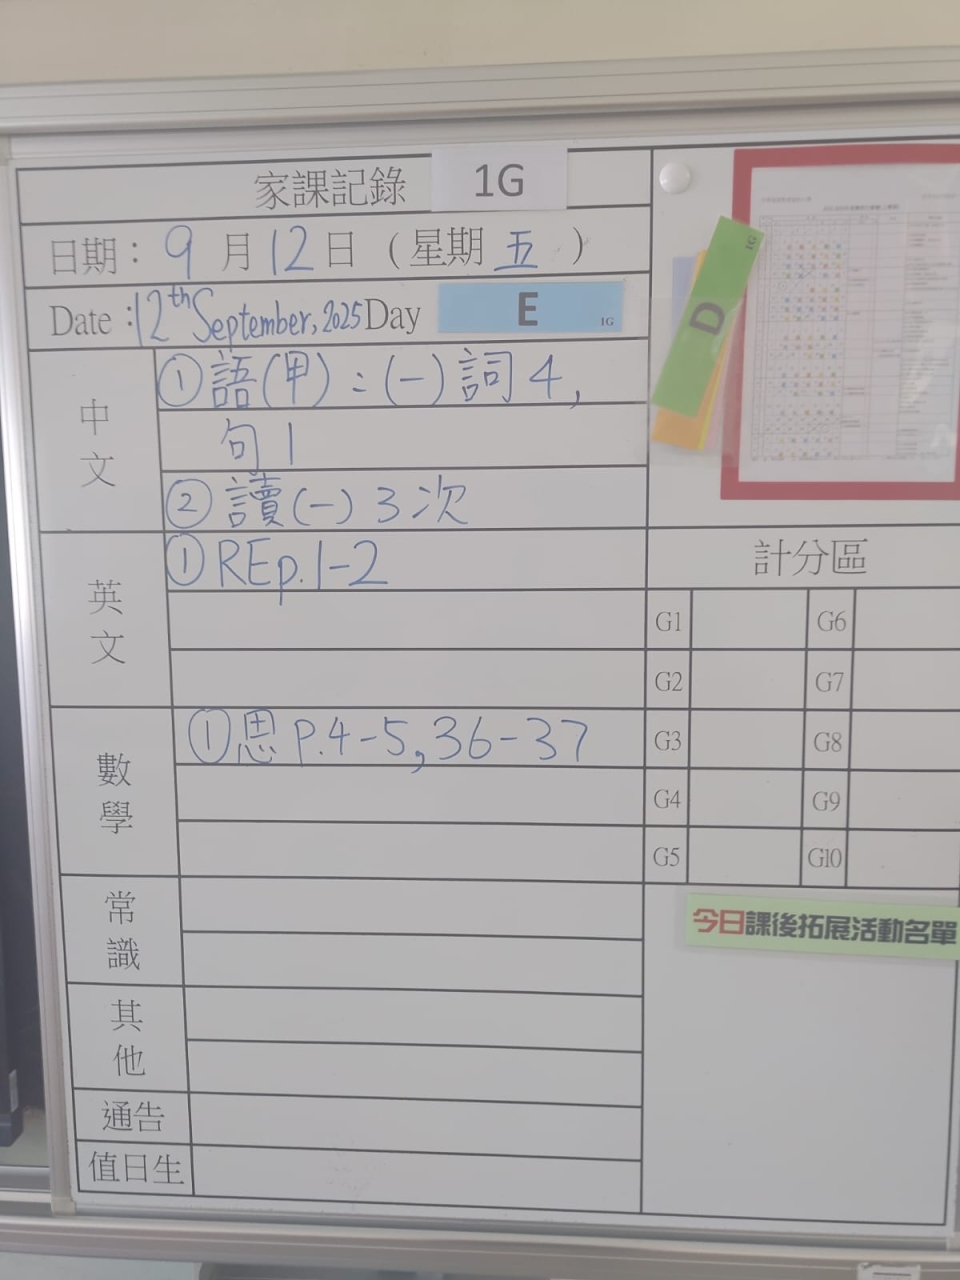 家課記錄 1G
日期：9月12日（星期五）
Date :12th September, 2025 Day E 1G
D 1G
中文
①語(甲)：(一)詞4,
句1
②讀(一)3次
英文
①REp.1-2
數學
①思P.4-5,36-37
常識
其他
通告
值日生
計分區
G1 G6
G2 G7
G3 G8
G4 G9
G5 G10
今日課後拓展活動名單